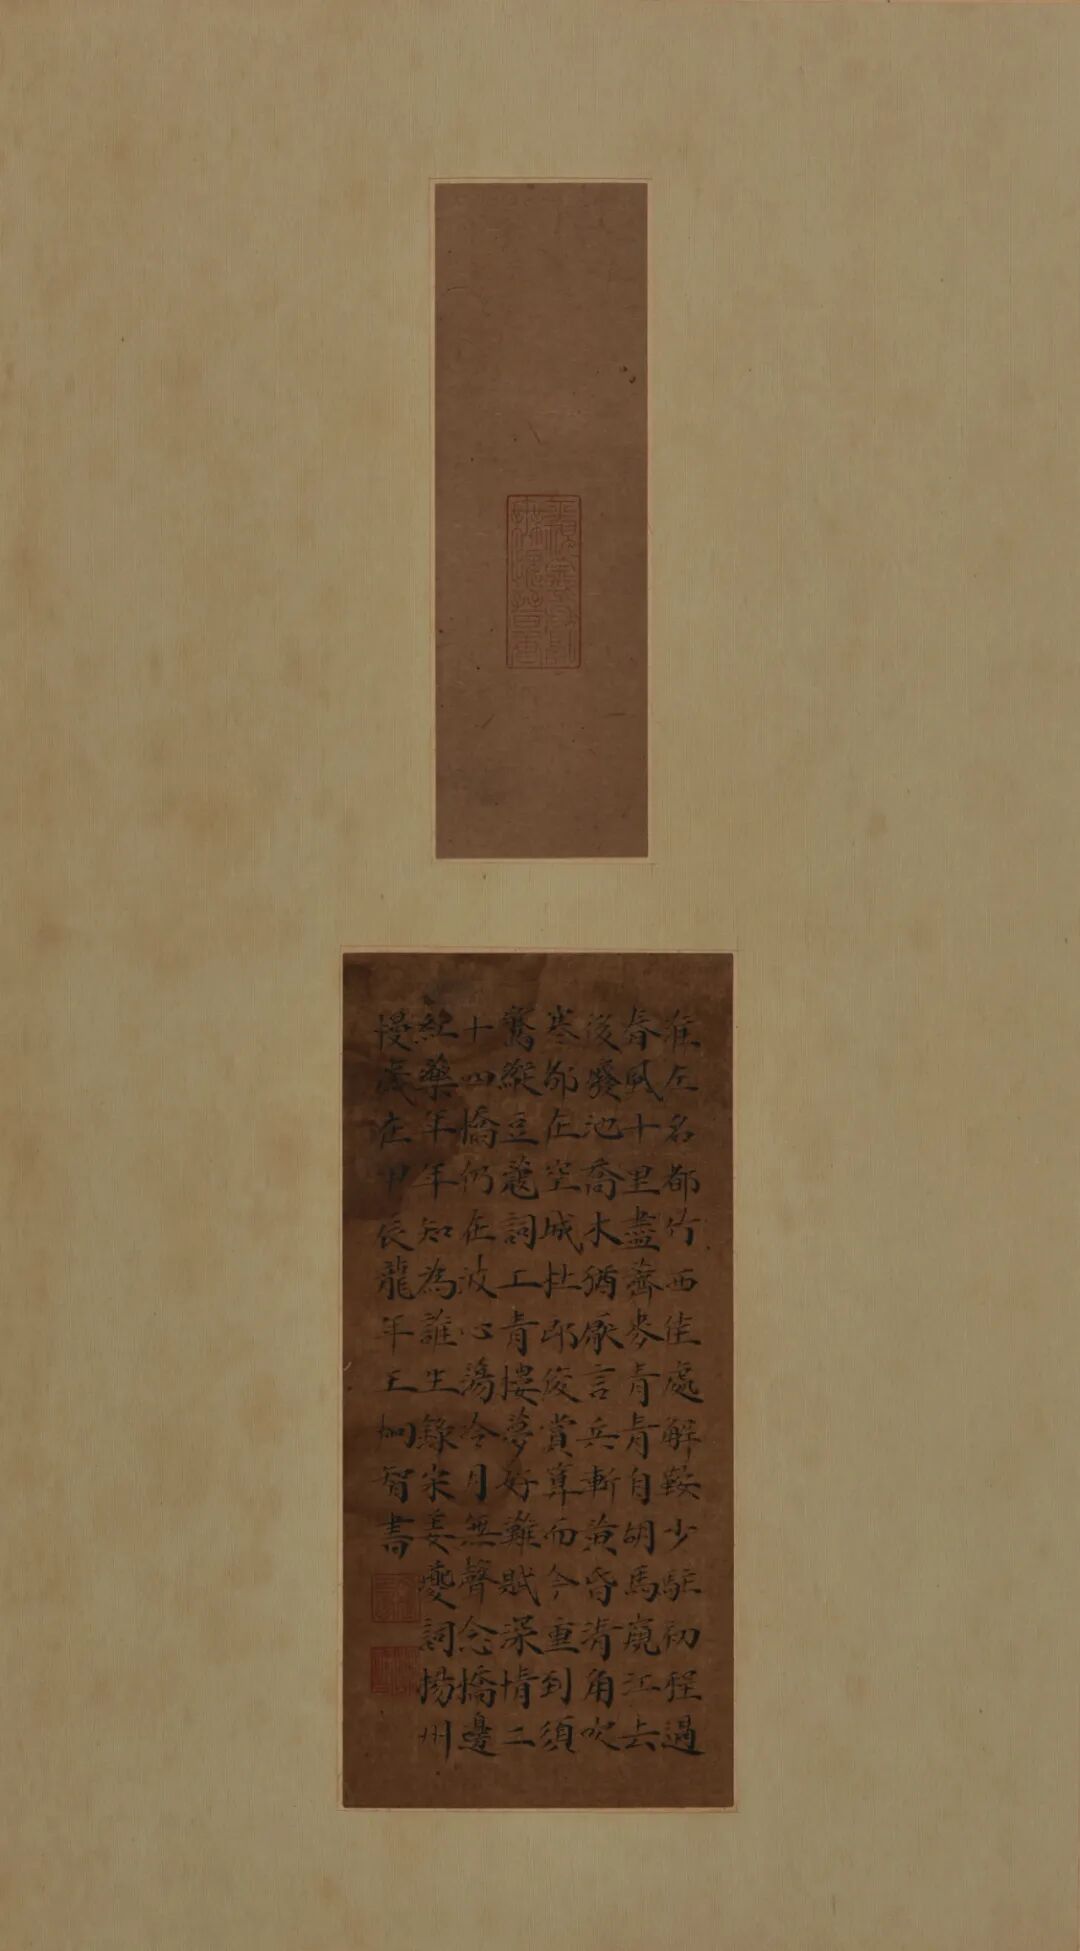 淮左名都竹西佳處解鞍少駐初程過
春風十里盡薺麥青青自胡馬窺江去
後廢池喬木猶厭言兵漸黃昏清角吹
寒都在空城杜郎俊賞算而今重到須
驚縱豆蔻詞工青樓夢好難賦深情二
十四橋仍在波心蕩冷月無聲念橋邊
紅藥年年知為誰生錄宋姜夔詞揚州
慢歲在甲辰龍年王如智書